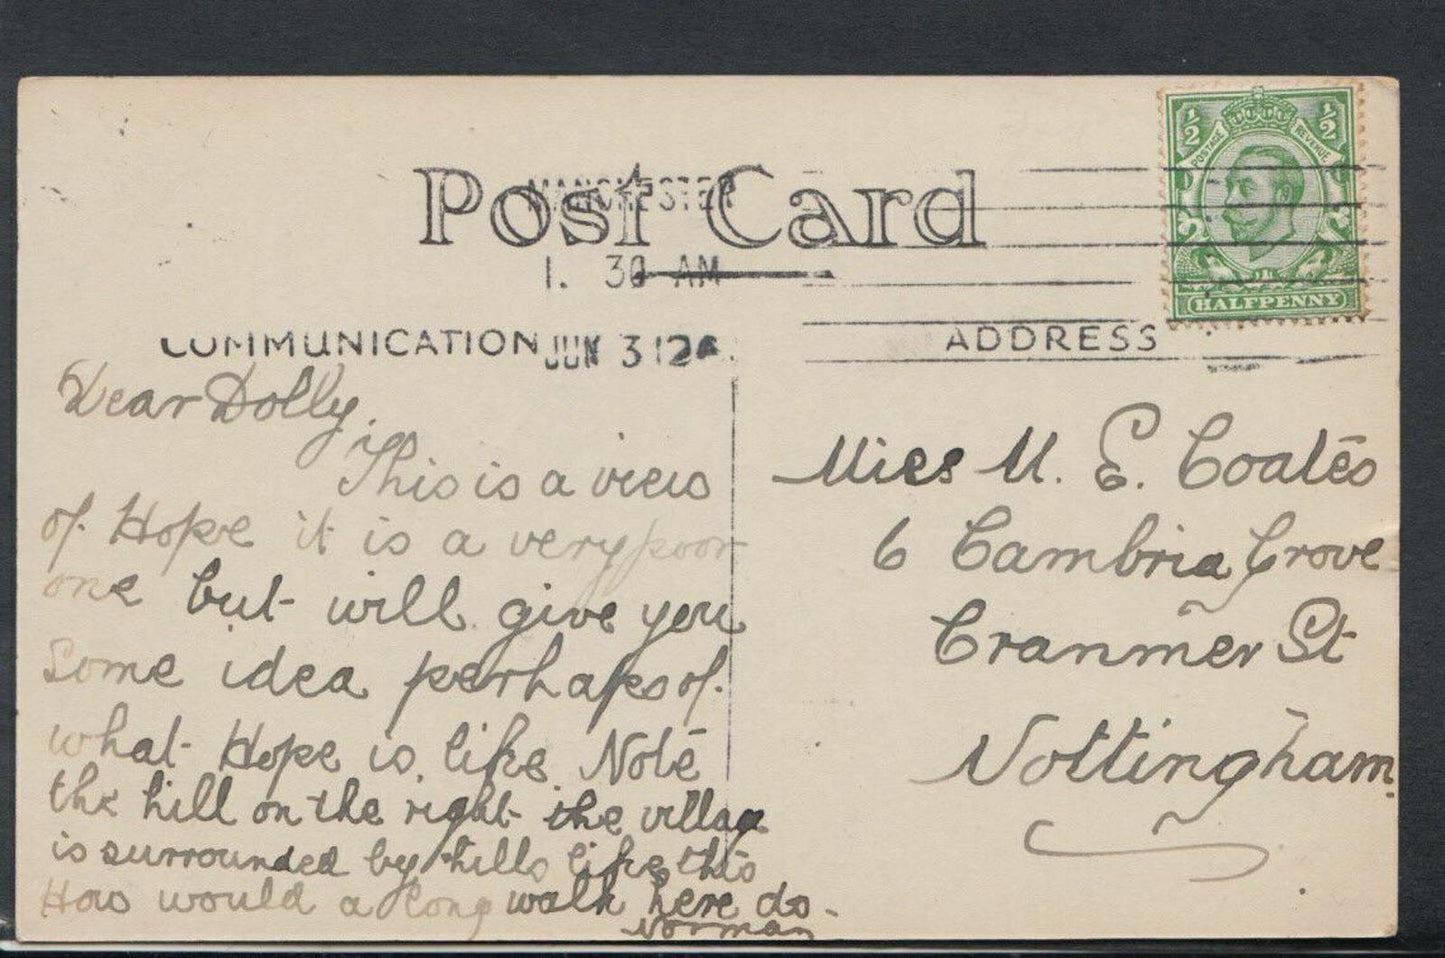 Post Card
MANCHESTER
1. 30 AM
JUN 3 12
COMMUNICATION
ADDRESS
1/2 1/2
POSTAGE REVENUE
HALFPENNY
Dear Dolly,
This is a view
of Hope it is a very poor
one but will give you
some idea perhaps of
what Hope is like Note
the hill on the right the village
is surrounded by hills like this
How would a long walk here do.
Norman
Miss M. E. Coates
6 Cambria Grove
Cranmer St
Nottingham.